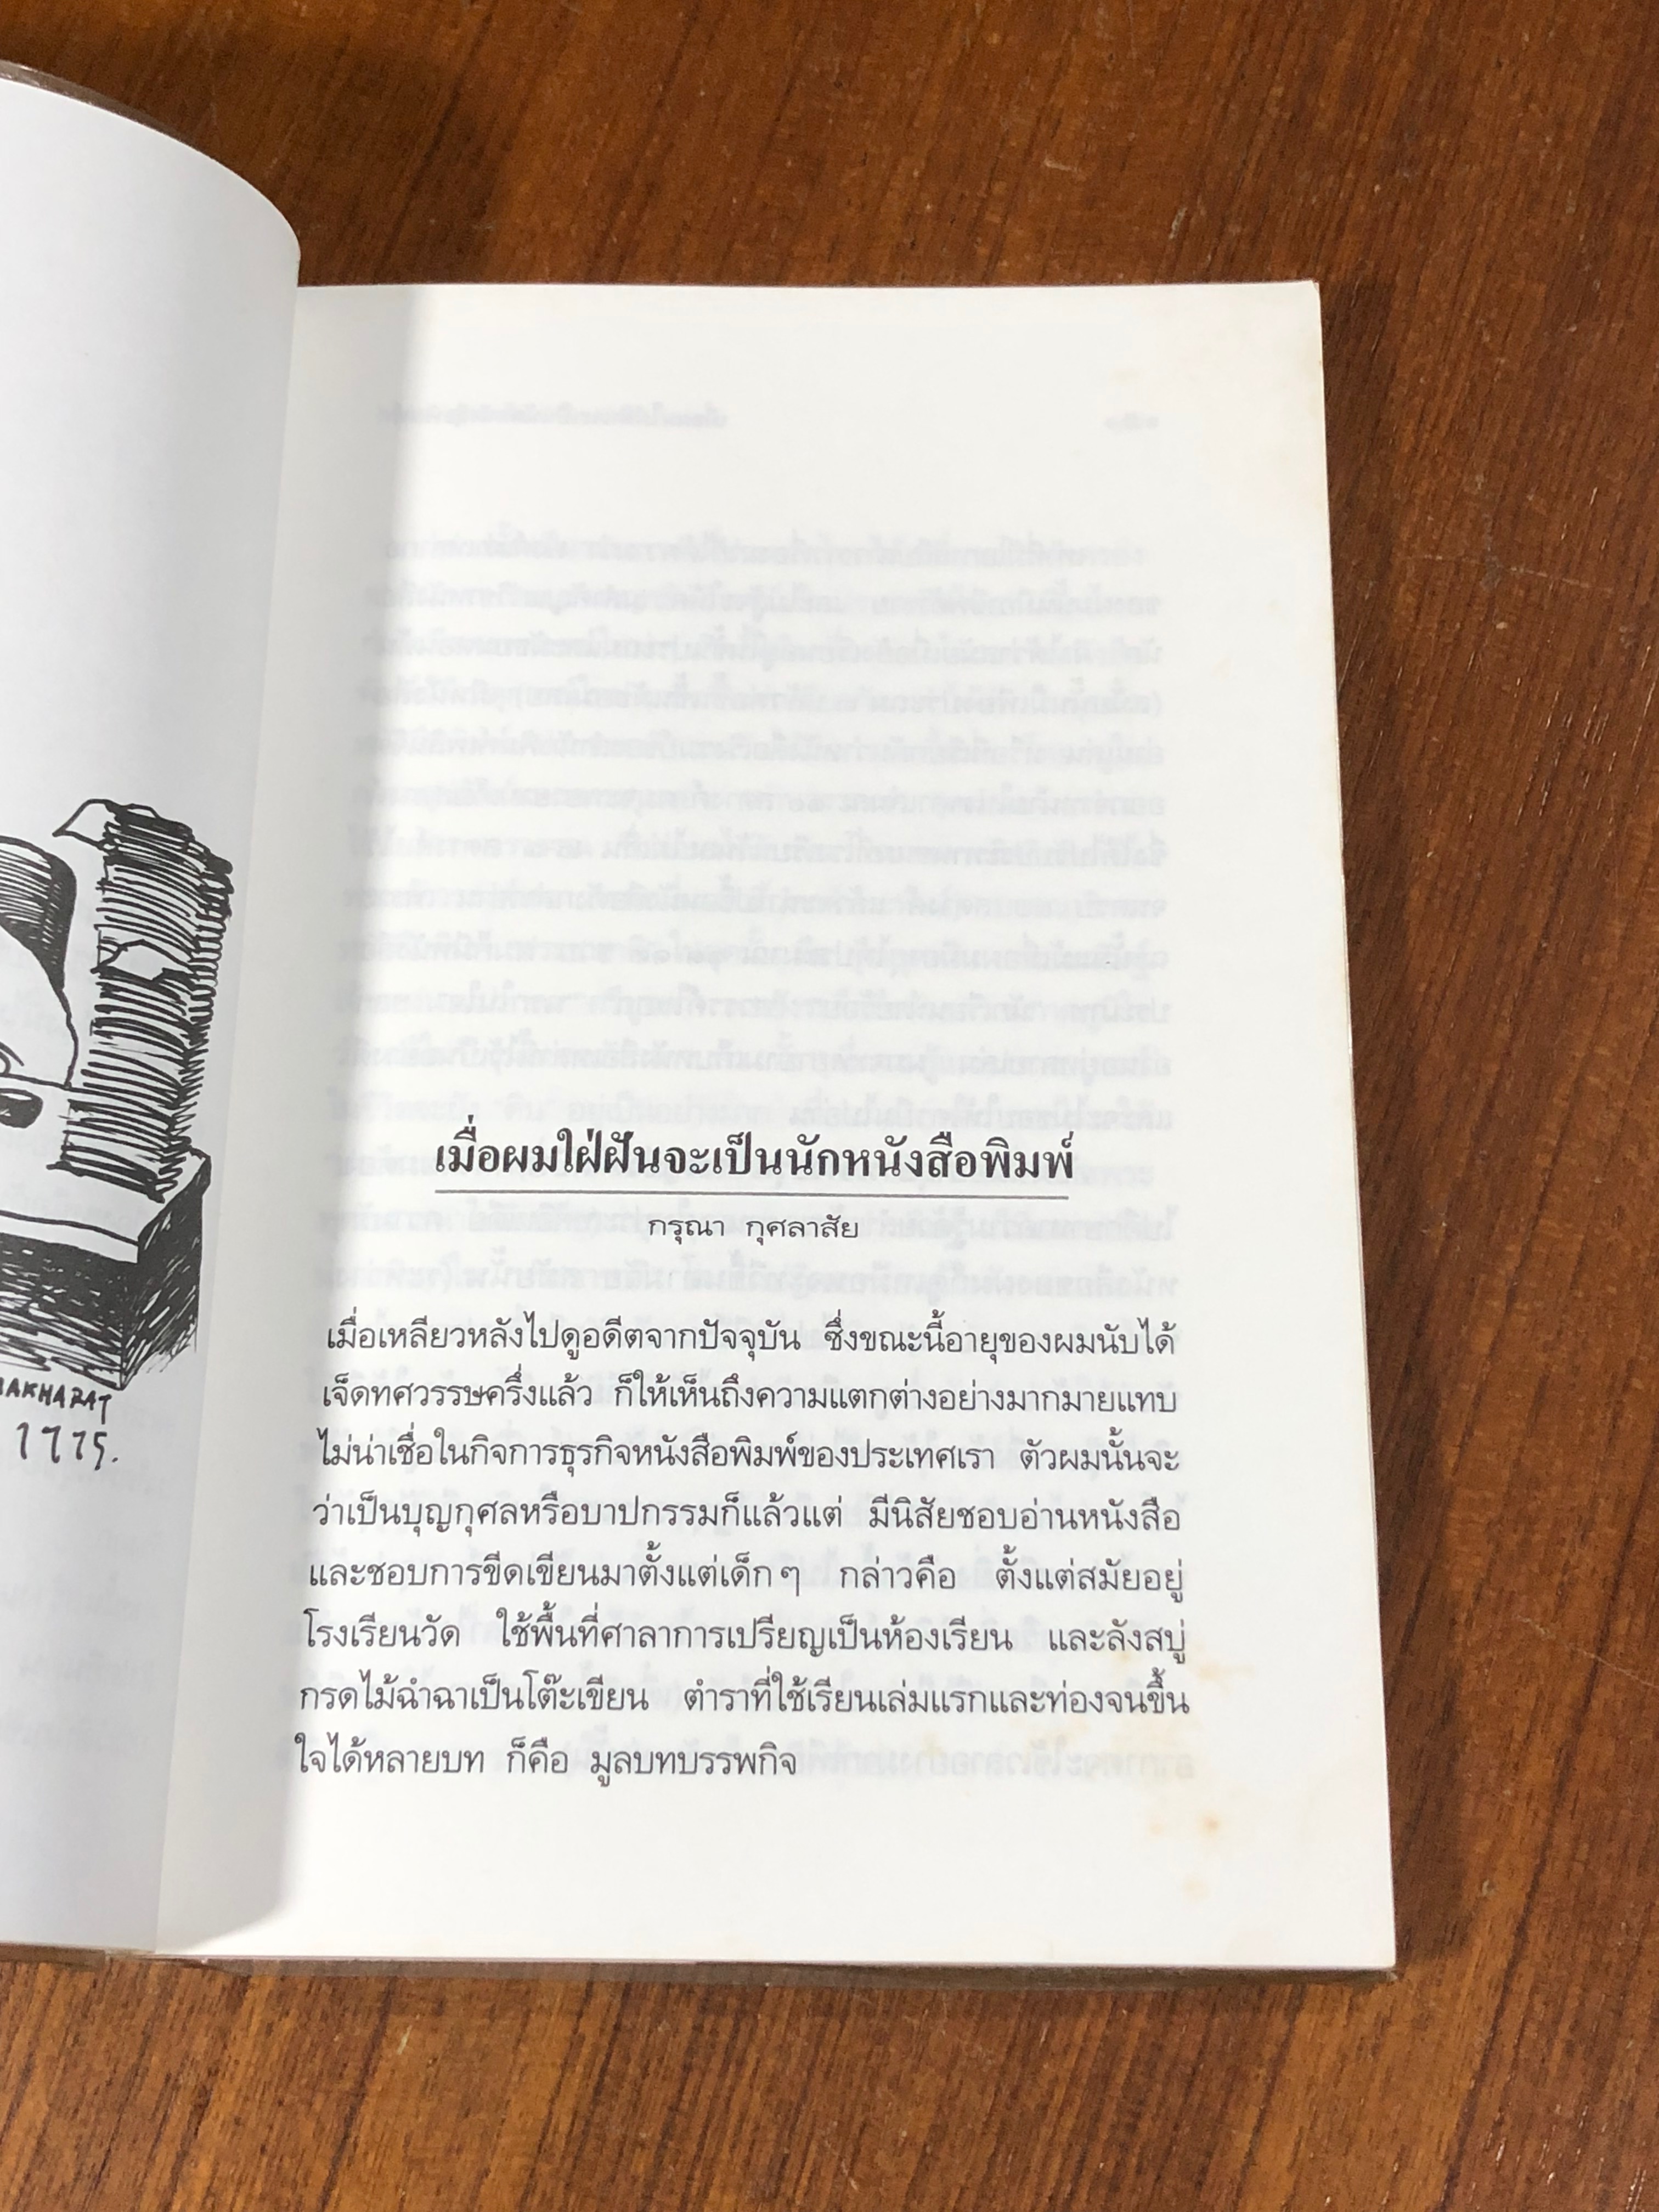 เมื่อผมใฝ่ฝันจะเป็นนักหนังสือพิมพ์
กรุณา กุศลาสัย
เมื่อเหลียวหลังไปดูอดีตจากปัจจุบัน ซึ่งขณะนี้อายุของผมนับได้
เจ็ดทศวรรษครึ่งแล้ว ก็ให้เห็นถึงความแตกต่างอย่างมากมายแทบ
ไม่น่าเชื่อในกิจการธุรกิจหนังสือพิมพ์ของประเทศเรา ตัวผมนั้นจะ
ว่าเป็นบุญกุศลหรือบาปกรรมก็แล้วแต่ มีนิสัยชอบอ่านหนังสือ
และชอบการขีดเขียนมาตั้งแต่เด็กๆ กล่าวคือ ตั้งแต่สมัยอยู่
โรงเรียนวัด ใช้พื้นที่ศาลาการเปรียญเป็นห้องเรียน และลังสบู่
กรดไม้ฉำฉาเป็นโต๊ะเขียน ตำราที่ใช้เรียนเล่มแรกและท่องจนขึ้น
ใจได้หลายบท ก็คือ มูลบทบรรพกิจ